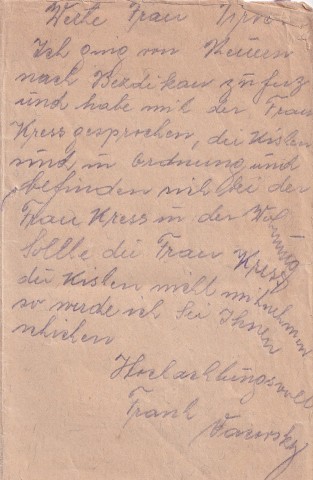 Werte Frau
Ich ging von Neuern
nach Bezdikau zu fuz
und habe mit der Frau
Kress gesprochen, die Kisten
sind in Ordnung und
befinden sich bei der
Frau Kress in der Wohnung
Sollte die Frau Kress
die Kisten nicht mitnehmen
so werde ich sei Ihnen
schicken
Hochachtungsvoll
Frank